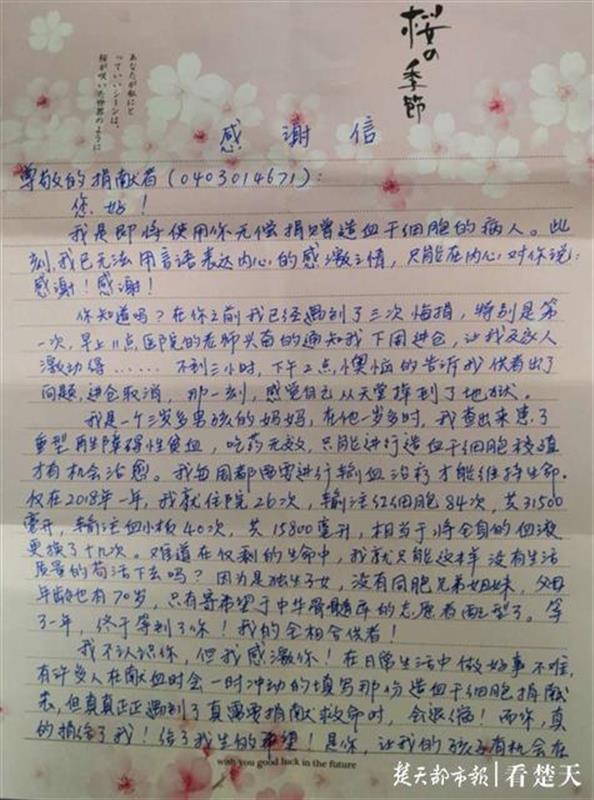 桜の季節
あなたが私にと
っていいシーンは、
桜が咲いた世界のように
感谢信
尊敬的捐献者(0403014671):
您好!
我是即将使用你无偿捐赠造血干细胞的病人。此
刻,我已无法用言语表达内心的感激之情,只能在内心对你说:
感谢!感谢!
你知道吗?在你之前我已经遇到了三次悔捐,特别是第
一次,早上11点医院的老师兴奋的通知我下周进仓,让我及家人
激动得……不到三小时,下午2点,懊恼的告诉我供者出了
问题,进仓取消,那一刻,感觉自己从天堂掉到了地狱。
我是一个三岁多男孩的妈妈,在他一岁多时,我查出来患了
重型再生障碍性贫血,吃药无效,只能进行造血干细胞移植
才有机会治愈。我每周都需要进行输血治疗才能维持生命.
仅在2018年一年,我就住院26次,输注红细胞84次,共31500
毫升,输注血小板40次,共15800毫升,相当于将全身的血液
更换了十几次。难道在仅剩的生命中,我就只能这样没有生活
质量的苟活下去吗?因为是独生子女,没有同胞兄弟姐妹,父母
年龄也有70岁,只有寄希望于中华骨髓库的志愿者配型了。等
了一年,终于等到了你!我的全相合供者!
我不认识你,但我感激你!在日常生活中做好事不难,
有许多人在献血时会一时冲动的填写那份造血干细胞捐献
表,但真真正正遇到了真需要捐献救命时,会退缩!而你,真
的捐给了我!给了我生的希望!是你,让我的孩子有机会在
wish you good luck in the future
楚天都市报|看楚天